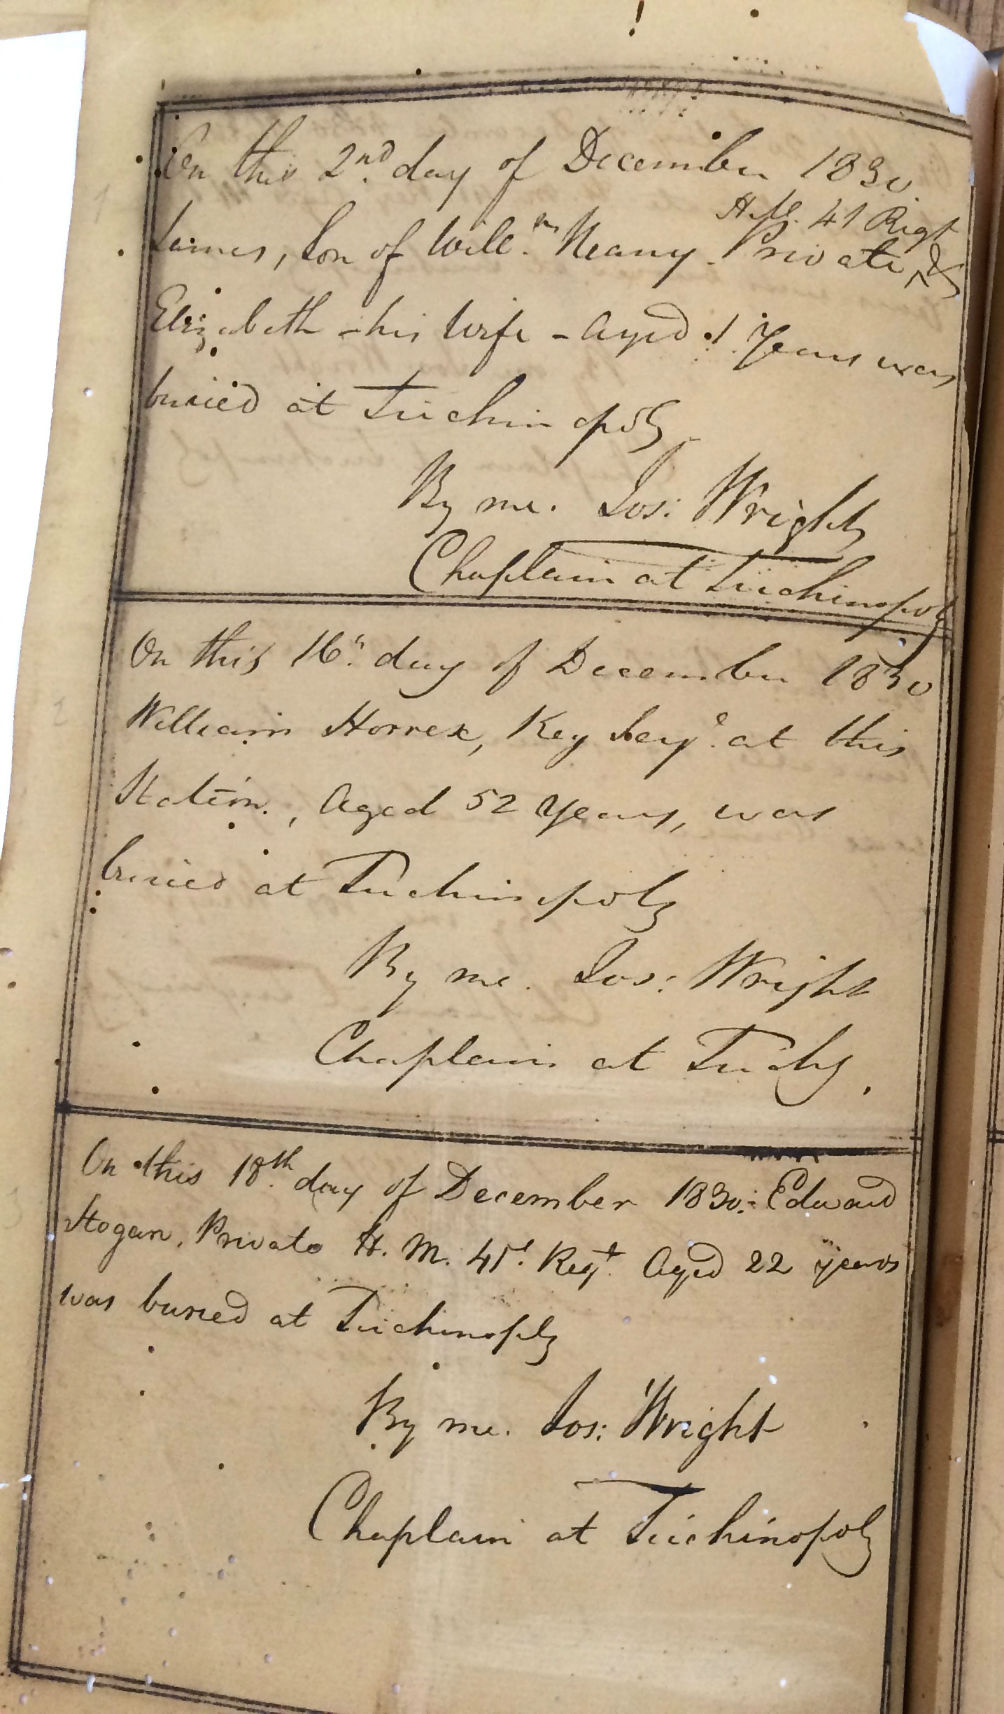 On this 2nd. day of December 1830
H. M. 41 Regt
James, Son of Willm. Neany. Private, &
Elizabeth - his Wife - aged 1 Years was
buried at Trichinopoly
By me. Jos: Wright
Chaplain at Trichinopoly
On this 16th. day of December 1830
William Horrex, Key Serje. at this
Station., Aged 52 Years, was
buried at Trichinopoly
By me. Jos: Wright
Chaplain at Trichy.
On this 18th. day of December 1830. Edward
Hogan, Private H. M. 41st. Regt. Aged 22 years
was buried at Trichinoply
By me. Jos: Wright
Chaplain at Trichinopoly